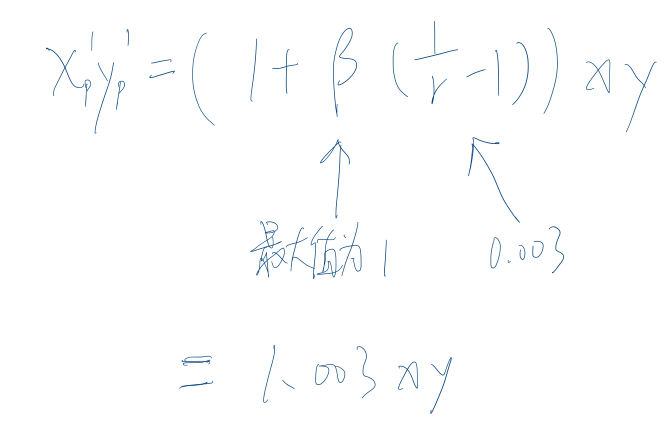 x'ₚy'ₚ = (1 + β(1/r - 1)) x y
最大值为1 0.003
= 1.003 x y